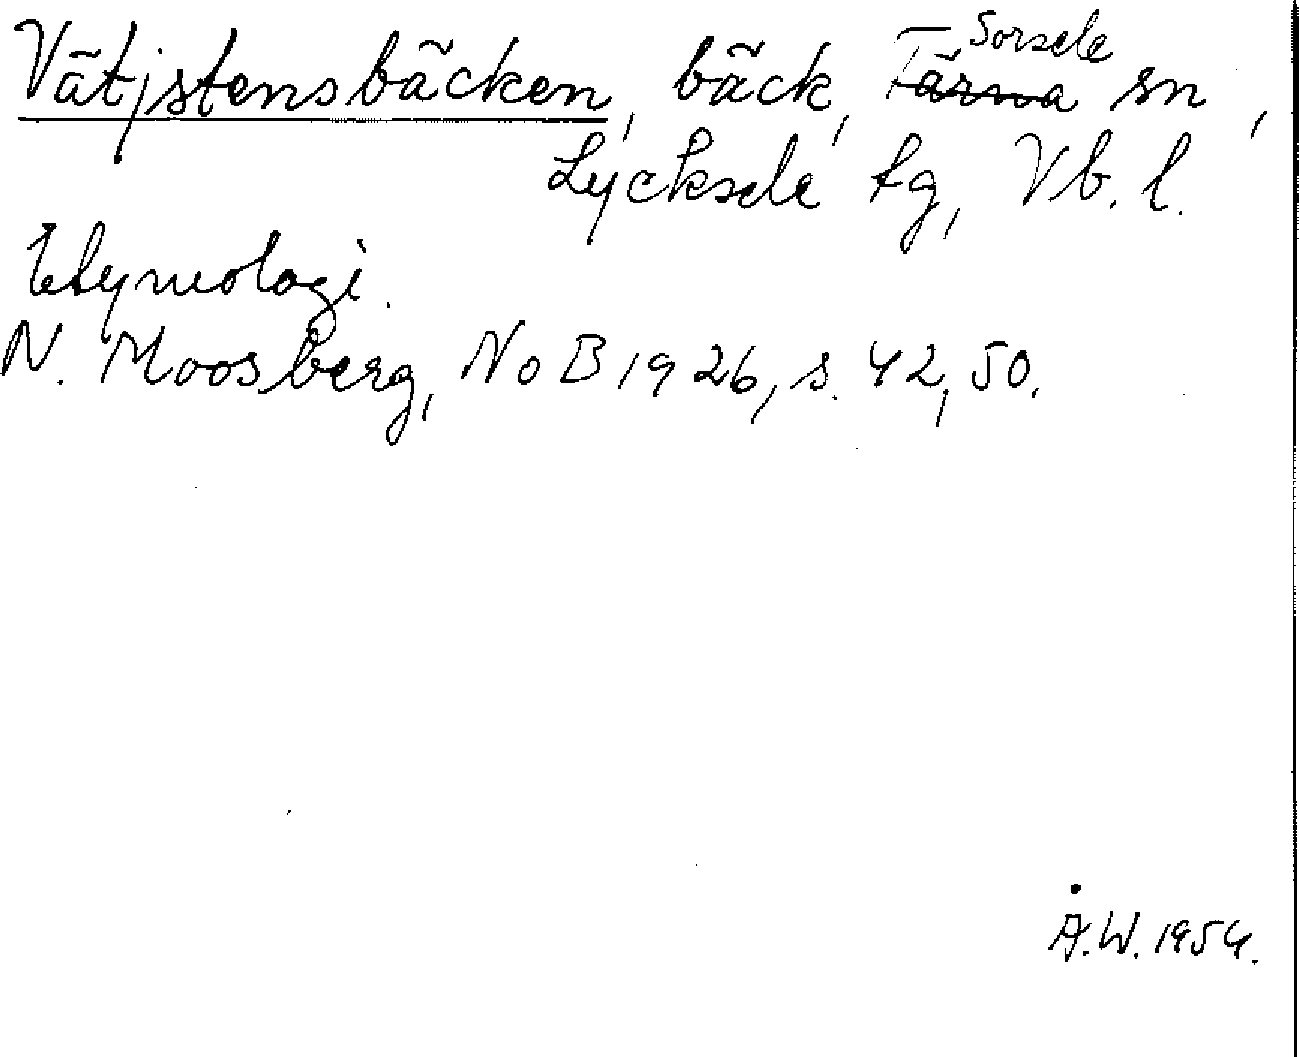 Vätjstensbäcken, bäck, Tärna Sorsele sn,
Lycksele tg, Vb. l.
Etymologi.
N. Moosberg, NoB 1926, s. 42, 50.
Å.W. 1954.